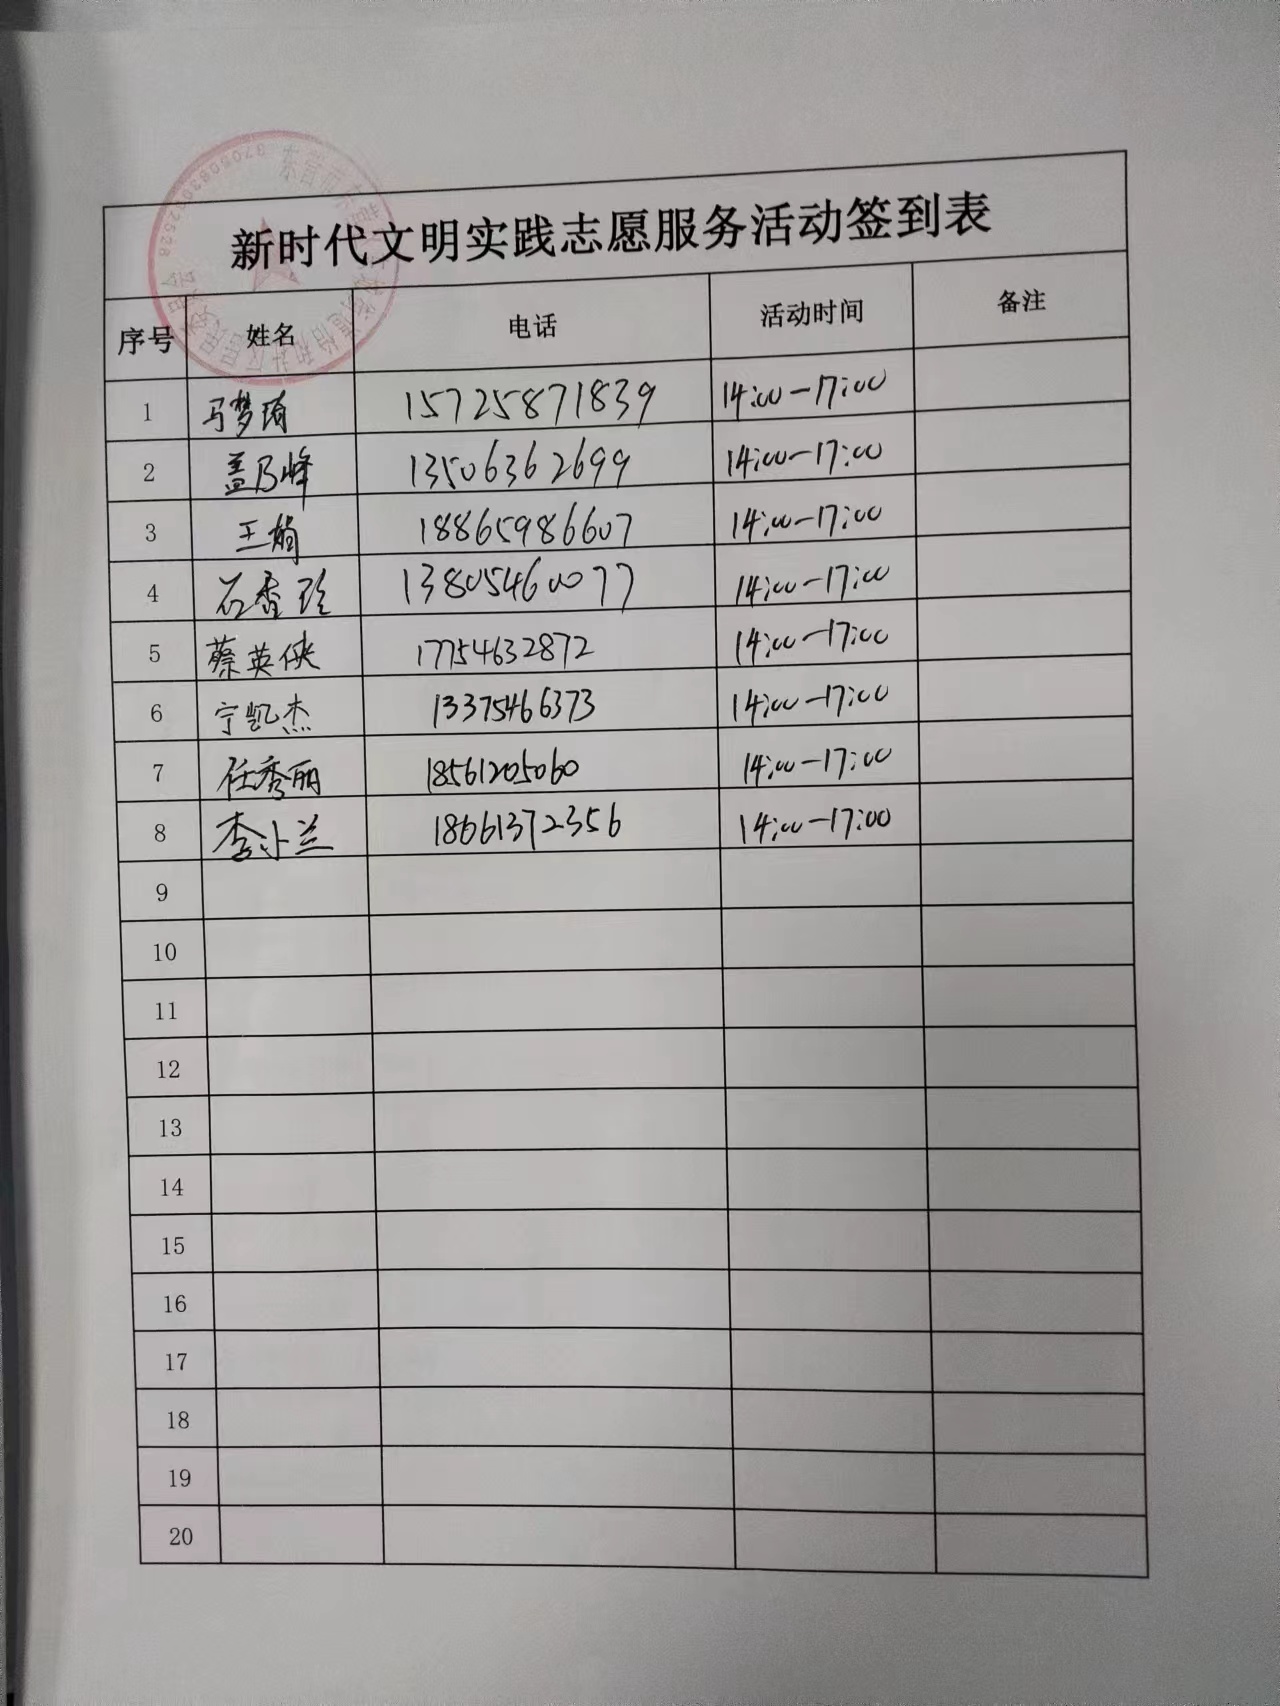 新时代文明实践志愿服务活动签到表
序号 姓名 电话 活动时间 备注
1 马梦琦 15725871839 14:00-17:00
2 盖乃峰 13506362699 14:00-17:00
3 王娟 18865986607 14:00-17:00
4 石香玲 13805460077 14:00-17:00
5 蔡英侠 17754632872 14:00-17:00
6 宁凯杰 13375466373 14:00-17:00
7 任秀丽 18561205060 14:00-17:00
8 李小兰 18661372356 14:00-17:00
9
10
11
12
13
14
15
16
17
18
19
20